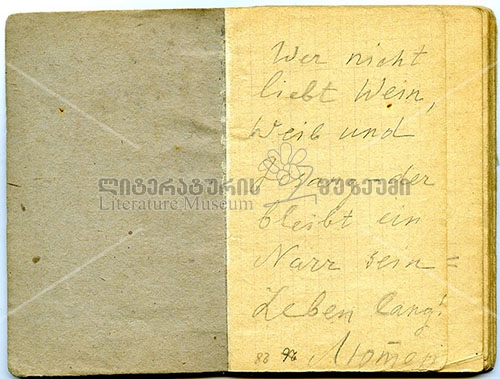 Wer nicht
liebt Wein,
Weib und
Gesang der
ლიტერატურის მუზეუმი
Literature Museum
bleibt ein
Narr sein=
Leben lang!